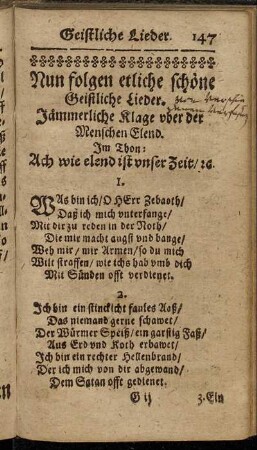 Geistliche Lieder. 147
Nun folgen etliche schöne
Geistliche Lieder.
Jämmerliche Klage vber der
Menschen Elend.
Im Thon:
Ach wie elend ist vnser Zeit/ ꝛc.
1.
WAs bin ich/ O HErr Zebaoth/
Daß ich mich vnterfange/
Mit dir zu reden in der Noth/
Die mir macht angst vnd bange/
Weh mir/ wir Armen/ so du mich
Wilt straffen/ wie ichs hab vmb dich
Mit Sünden offt verdienet.
2.
Ich bin ein stinckicht faules Aaß/
Das niemand gerne schawet/
Der Würmer Speiß/ ein garstig Faß/
Aus Erd vnd Koth erbawet/
Ich bin ein rechter Hellenbrand/
Der ich mich von dir abgewand/
Dem Satan offt gedienet.
G ij 3. Ein